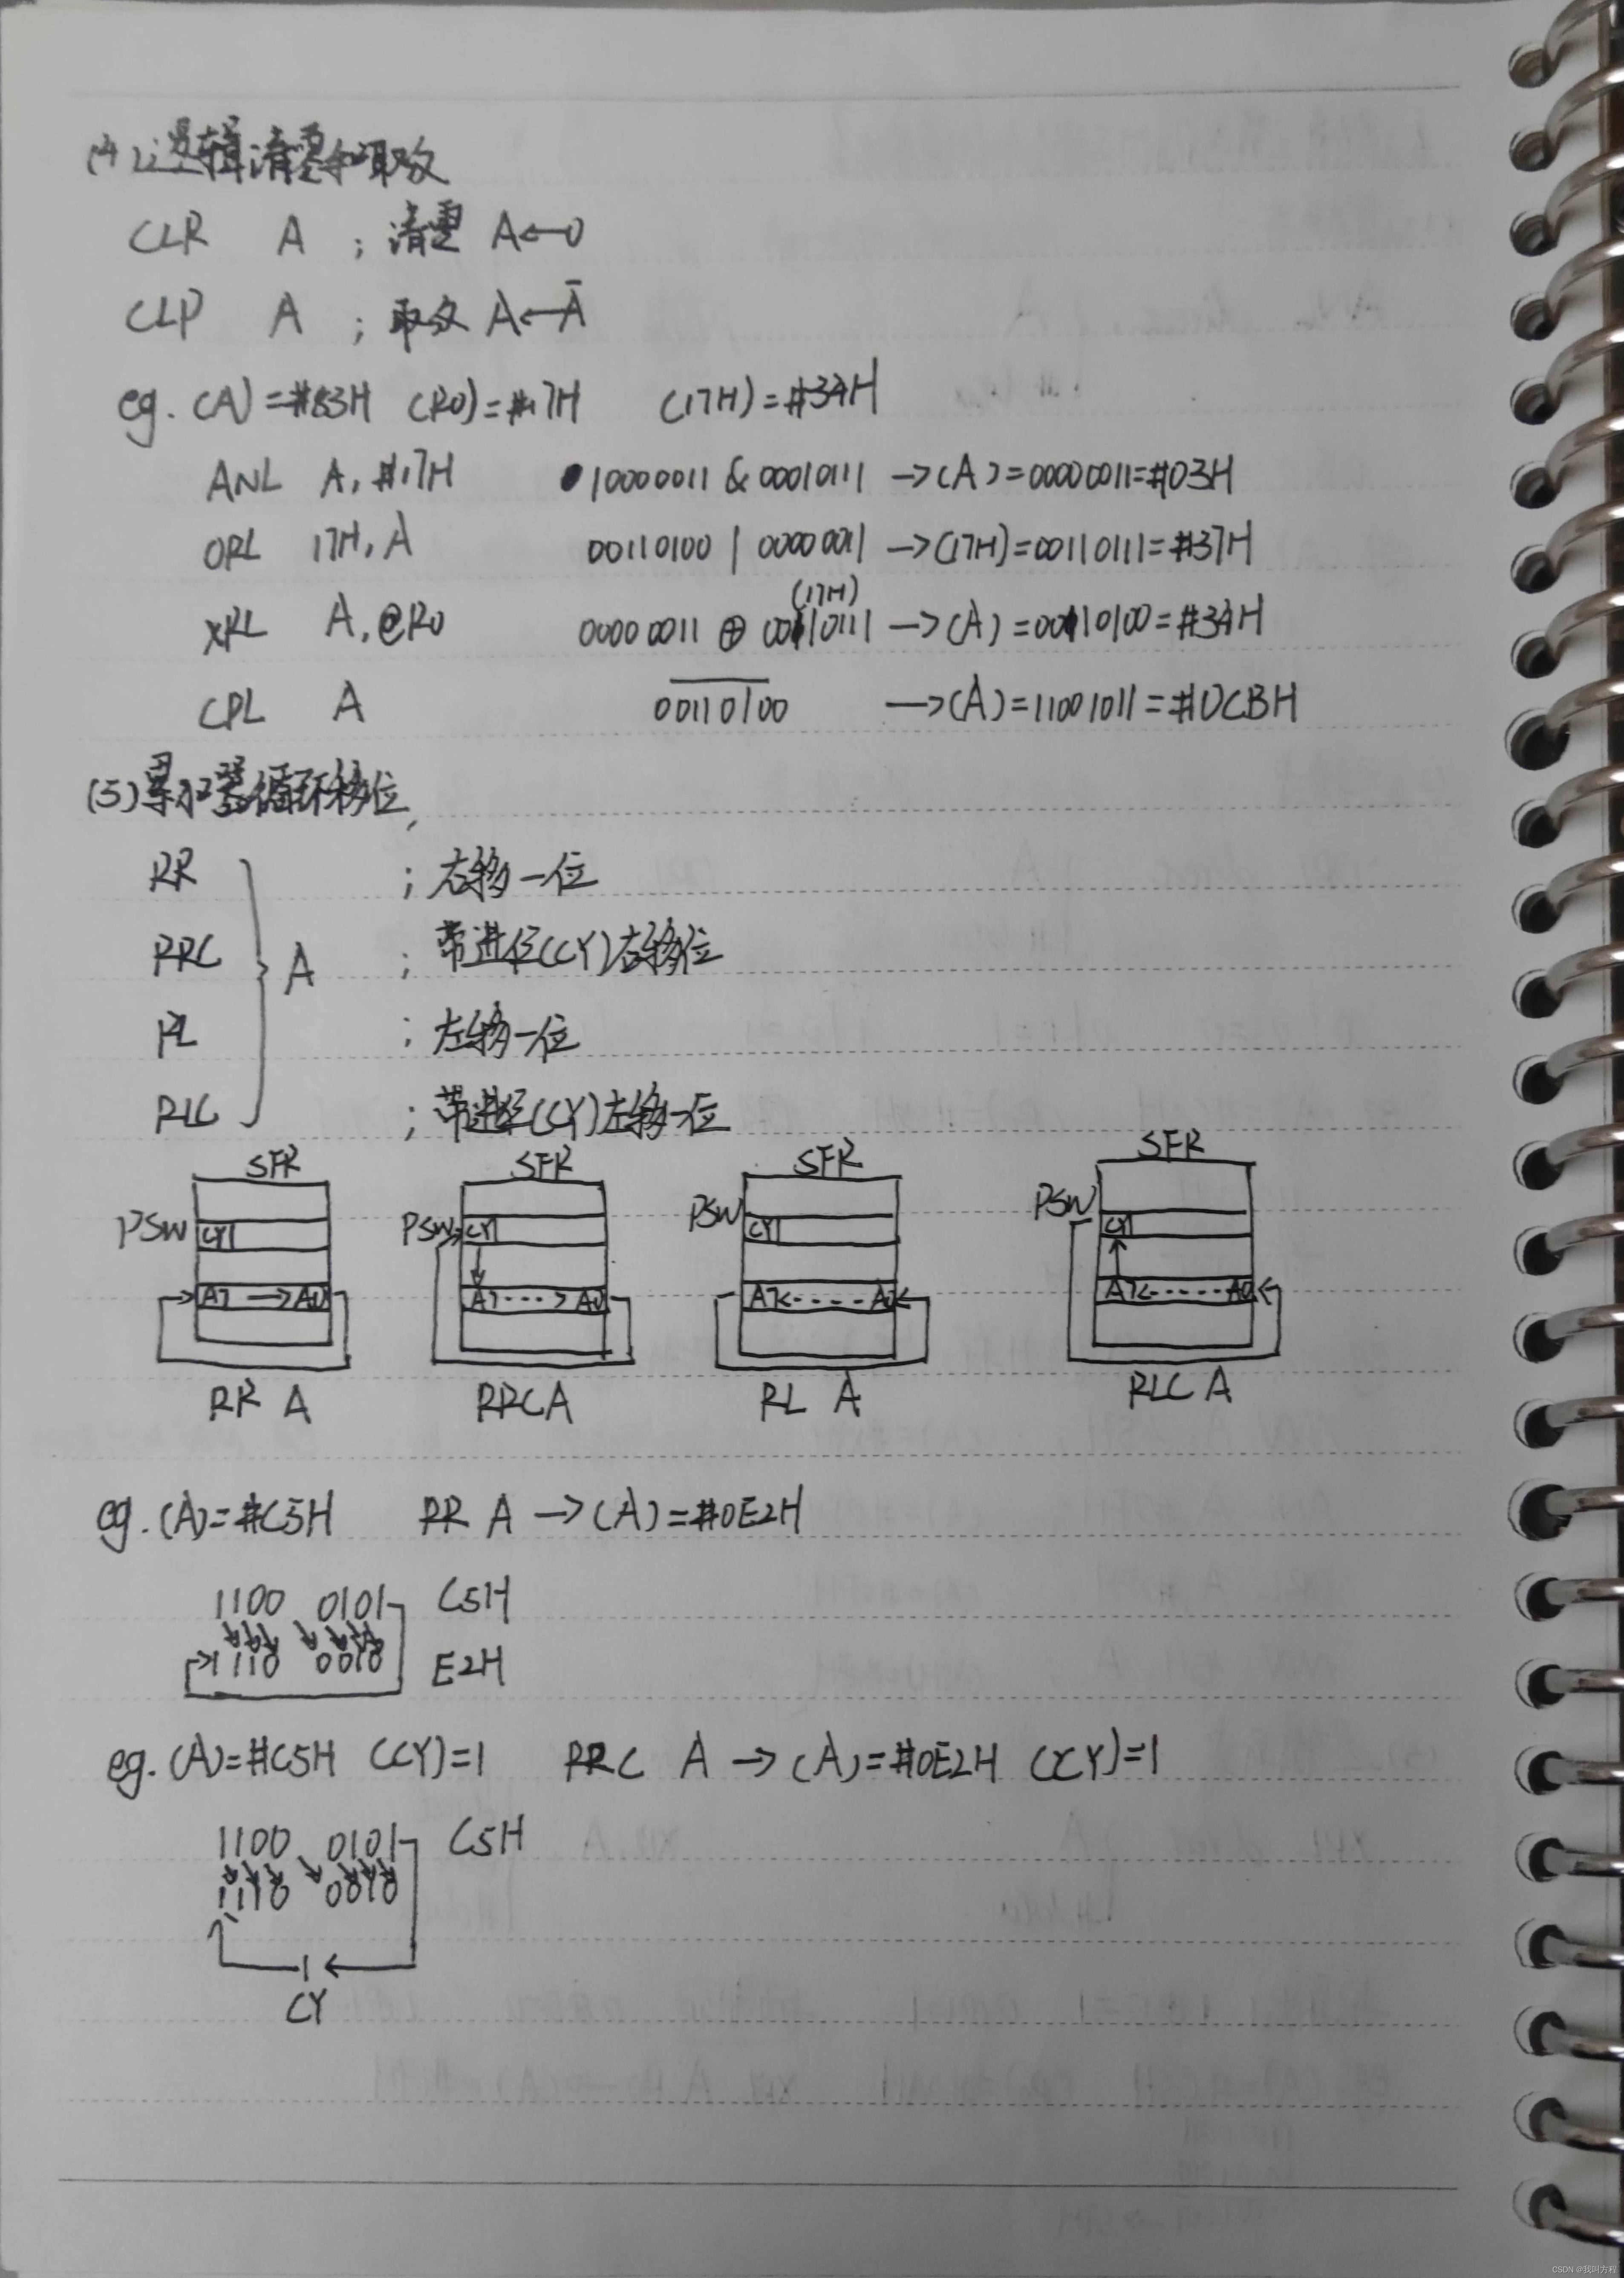 (4)逻辑清零和取反
CLR A ; 清零 A←0
CLP A ; 取反 A←Ā
eg. (A)=#83H (R0)=#17H (17H)=#34H
ANL A, #17H 10000011 & 00010111 →(A)=00000011=#03H
ORL 17H, A 00110100 | 00000011 →(17H)=00110111=#37H
(17H)
XRL A, @R0 00000011 ⊕ 00110111 →(A)=00110100=#34H
CPL A 00110100 →(A)=11001011=#0CBH
(5)累加器循环移位
RR ; 右移一位
RRC A ; 带进位(CY)右移位
RL ; 左移一位
RLC ; 带进位(CY)左移一位
SFR SFR SFR SFR
PSW CY PSW CY PSW CY PSW CY
A7 → A0 A7 ····> A0 A7 <····· A0 A7 <····· A0
RR A RRC A RL A RLC A
eg. (A)=#C5H RR A →(A)=#0E2H
1100 0101 C5H
1110 0010 E2H
eg. (A)=#C5H (CY)=1 RRC A →(A)=#0E2H (CY)=1
1100 0101 C5H
1110 0010
1
CY
CSDN @我叫方程